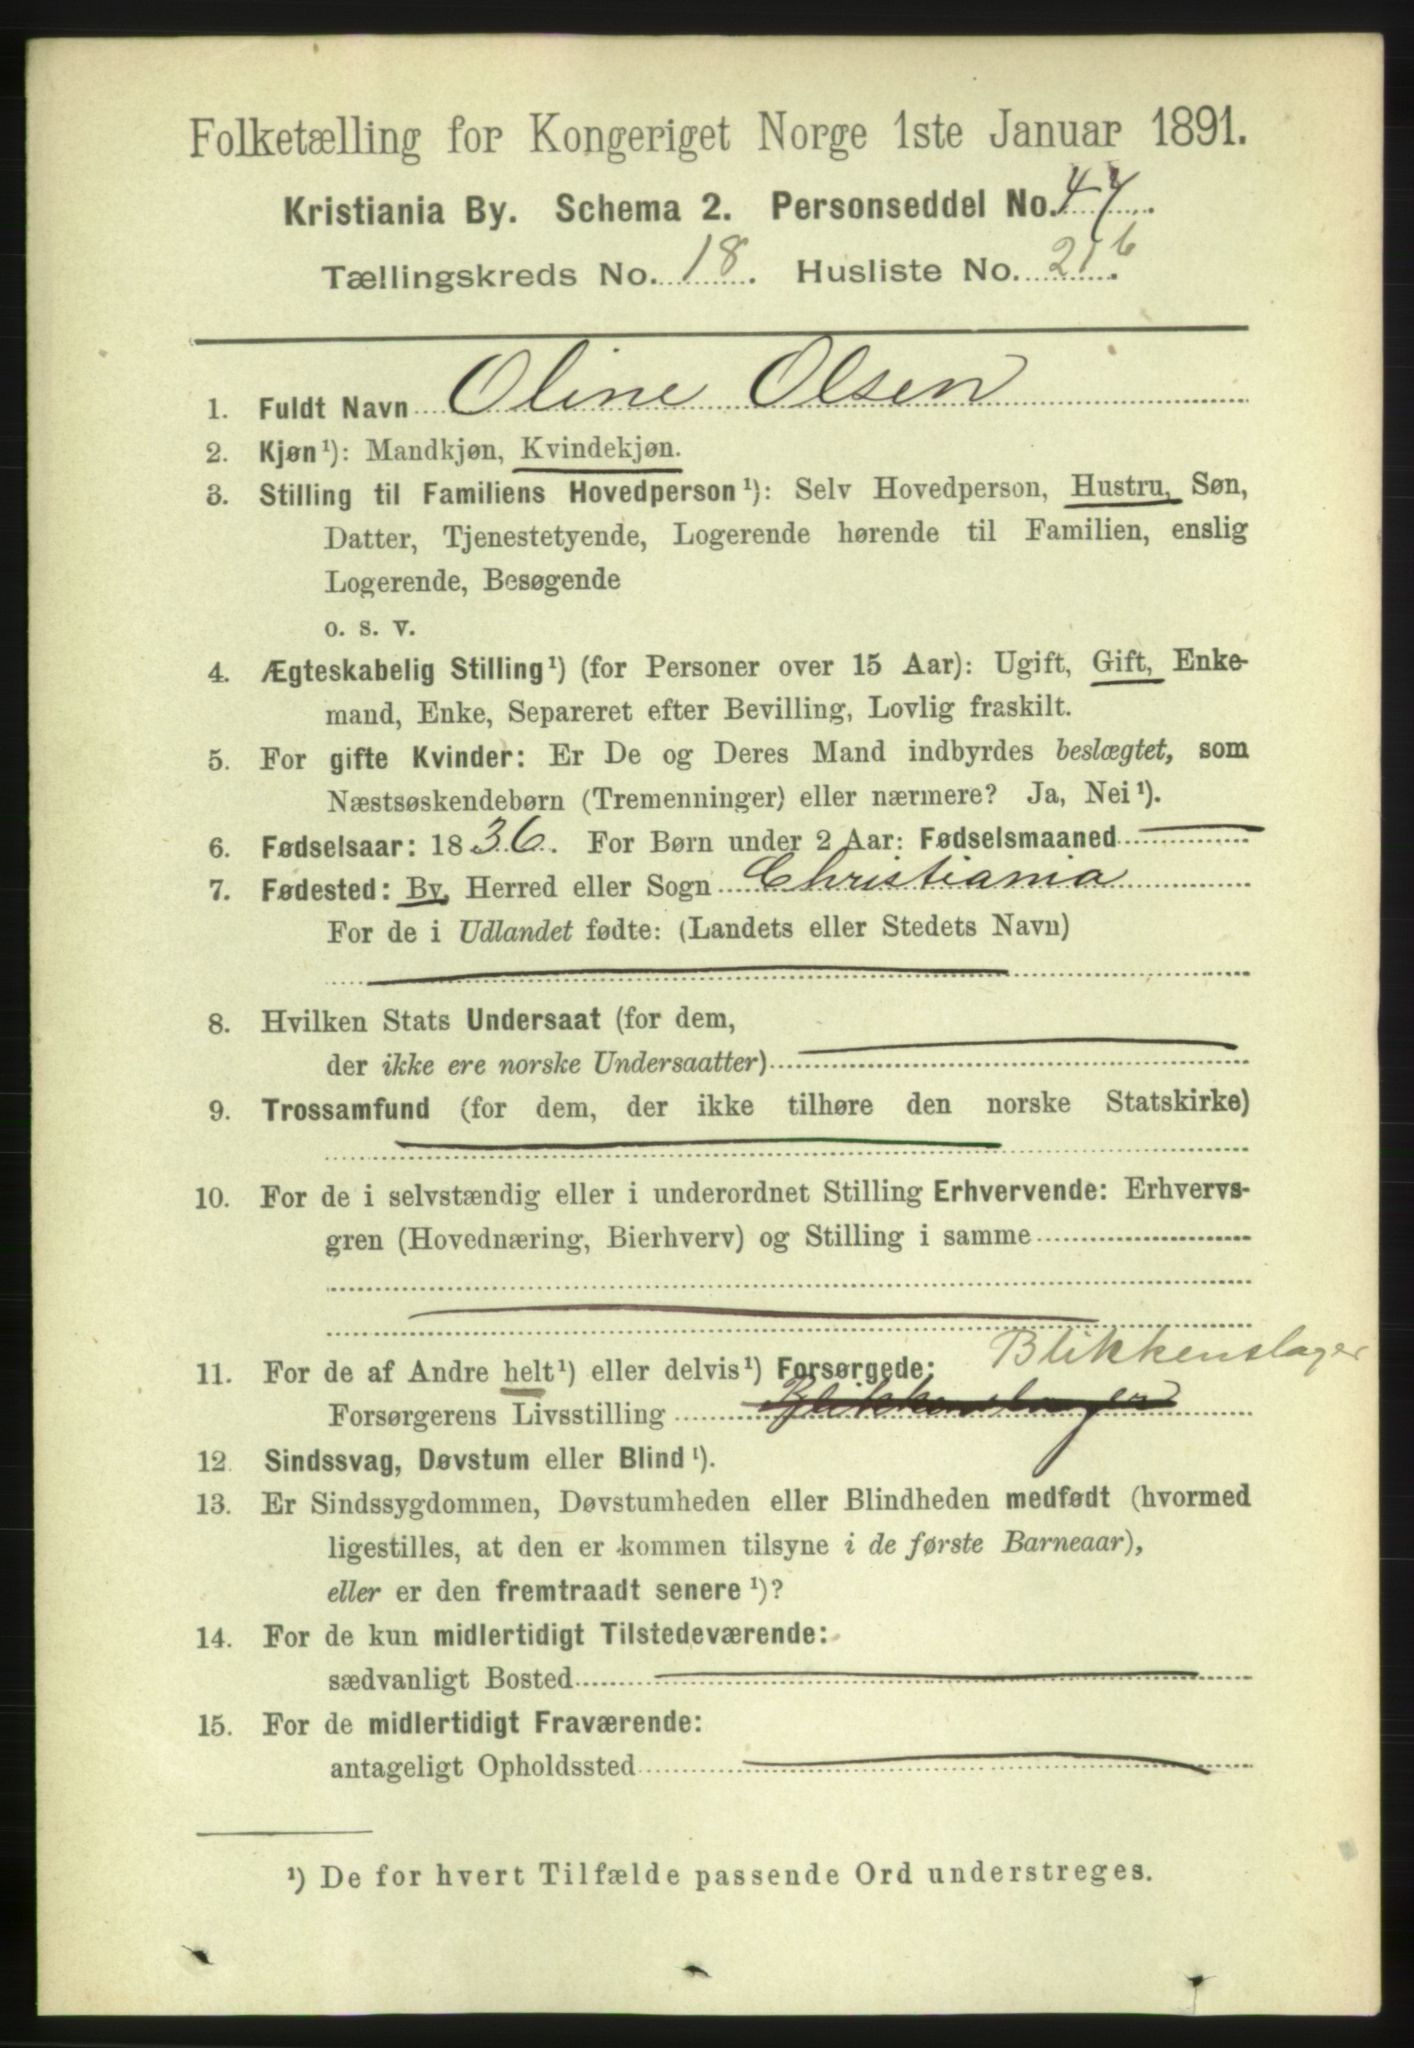 Folketælling for Kongeriget Norge 1ste Januar 1891.
Kristiania By. Schema 2. Personseddel No. 47.
Tællingskreds No. 18. Husliste No. 216.
1. Fuldt Navn Oline Olsen
2. Kjøn¹): Mandkjøn, Kvindekjøn.
3. Stilling til Familiens Hovedperson¹): Selv Hovedperson, Hustru, Søn,
Datter, Tjenestetyende, Logerende hørende til Familien, enslig
Logerende, Besøgende
o. s. v.
4. Ægteskabelig Stilling¹) (for Personer over 15 Aar): Ugift, Gift, Enke-
mand, Enke, Separeret efter Bevilling, Lovlig fraskilt.
5. For gifte Kvinder: Er De og Deres Mand indbyrdes beslægtet, som
Næstsøskendebørn (Tremenninger) eller nærmere? Ja, Nei¹).
6. Fødselsaar: 1836. For Børn under 2 Aar: Fødselsmaaned
7. Fødested: By, Herred eller Sogn Christiania
For de i Udlandet fødte: (Landets eller Stedets Navn)
8. Hvilken Stats Undersaat (for dem,
der ikke ere norske Undersaatter)
9. Trossamfund (for dem, der ikke tilhøre den norske Statskirke)
10. For de i selvstændig eller i underordnet Stilling Erhvervende: Erhvervs-
gren (Hovednæring, Bierhverv) og Stilling i samme
Blikkenslager
11. For de af Andre helt¹) eller delvis¹) Forsørgede:
Forsørgerens Livsstilling Blikkenslager
12. Sindssvag, Døvstum eller Blind¹).
13. Er Sindssygdommen, Døvstumheden eller Blindheden medfødt (hvormed
ligestilles, at den er kommen tilsyne i de første Barneaar),
eller er den fremtraadt senere¹)?
14. For de kun midlertidigt Tilstedeværende:
sædvanligt Bosted
15. For de midlertidigt Fraværende:
antageligt Opholdssted
¹) De for hvert Tilfælde passende Ord understreges.